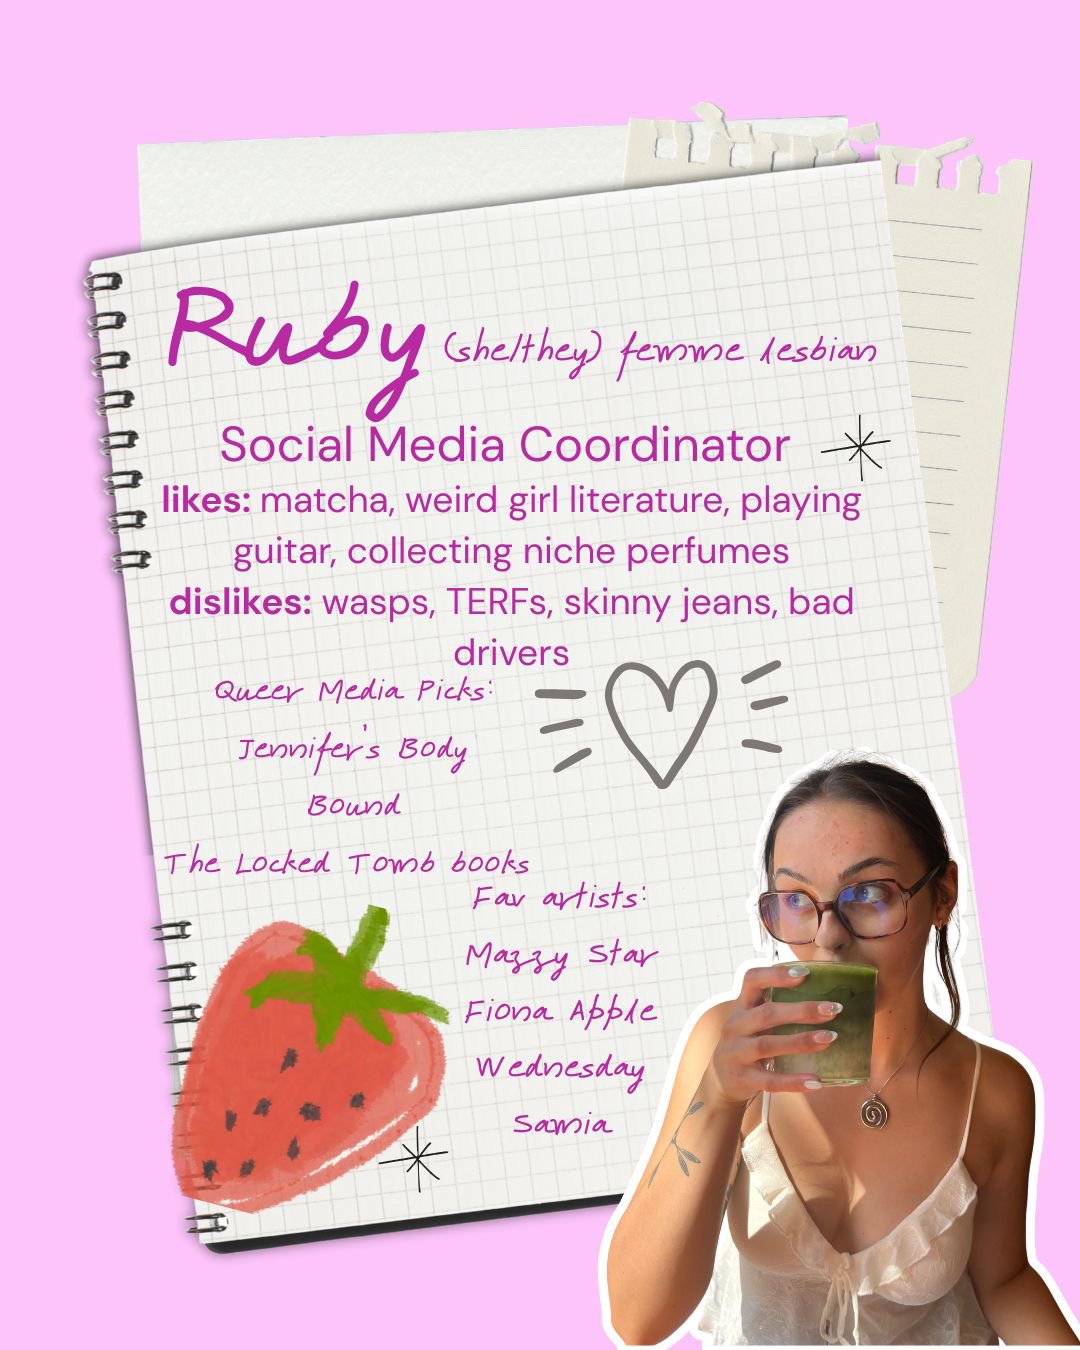 Ruby (she/they) femme lesbian
Social Media Coordinator
likes: matcha, weird girl literature, playing
guitar, collecting niche perfumes
dislikes: wasps, TERFs, skinny jeans, bad
drivers
Queer Media Picks:
Jennifer's Body
Bound
The Locked Tomb books
Fav artists:
Mazzy Star
Fiona Apple
Wednesday
Samia